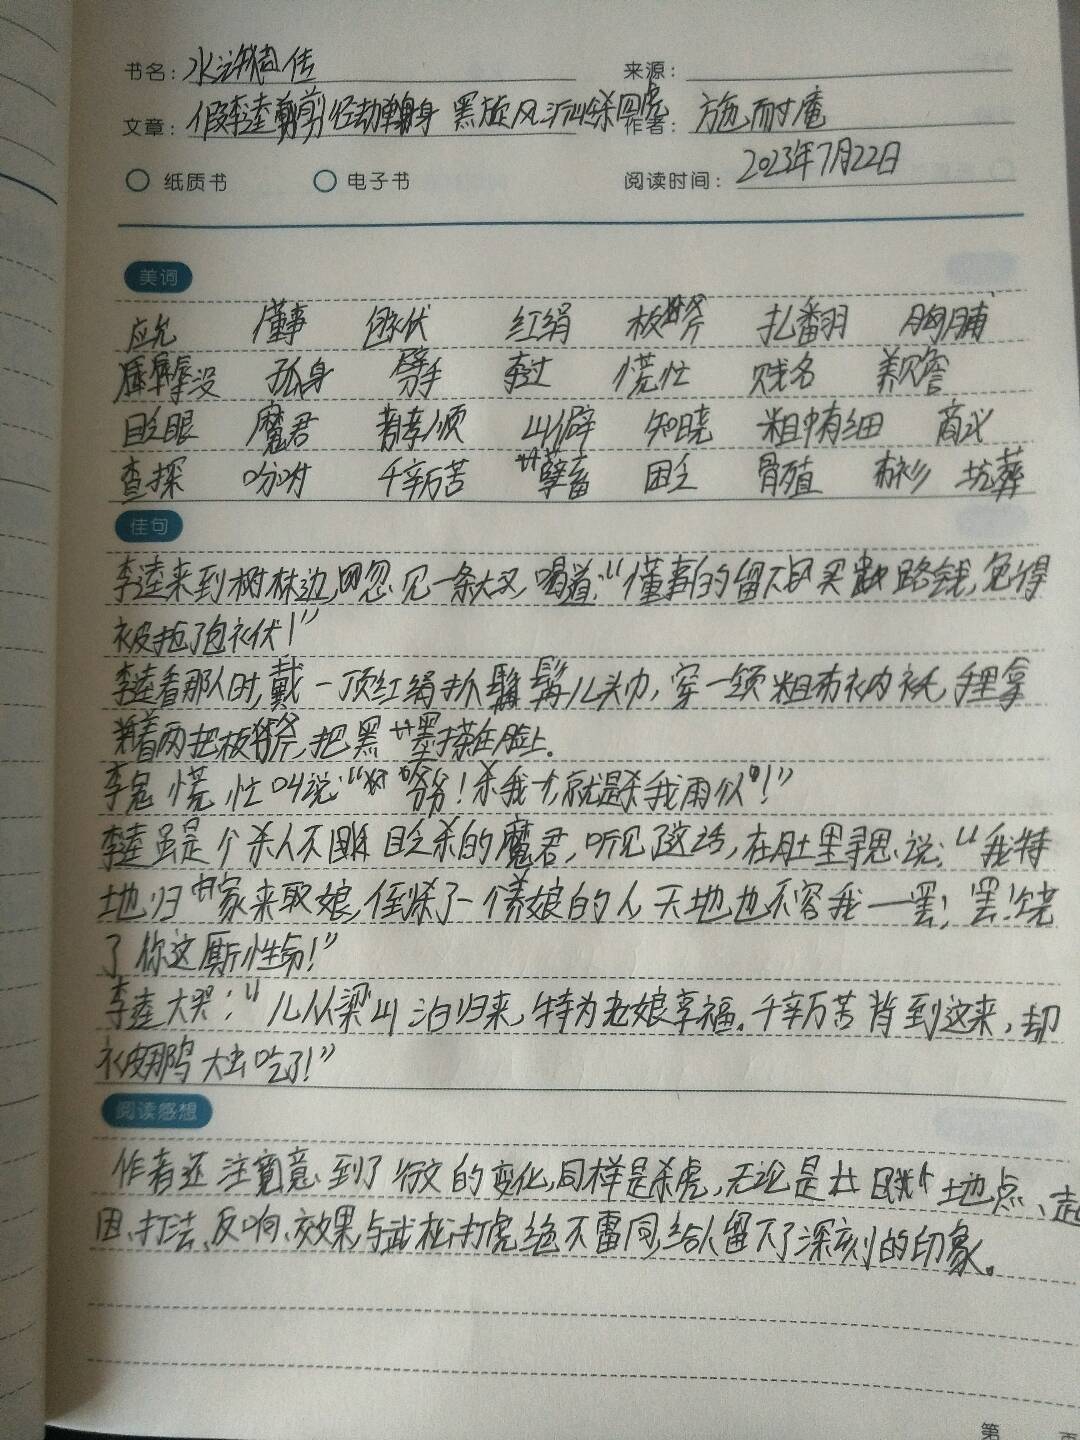 书名：水浒传 来源：
文章：假李逵剪径劫单身 黑旋风沂岭杀四虎 作者：施耐庵
纸质书 电子书 阅读时间：2023年7月22日
美词
应允 懂事 包袱 红绢 板斧 扎翻 胸脯
辱没 孤身 劈手 李逵 慌忙 贱名 养赡
眨眼 魔君 孝顺 山僻 知晓 粗中有细 商议
查探 吩咐 千辛万苦 孽畜 困乏 骨殖 布衫 坑葬
佳句
李逵来到树林边，忽见一条大汉，喝道：“懂事的留下买路钱，免得
被抢了包袱！”
李逵看那人时，戴一顶红绢抓髻儿头巾，穿一领粗布衣内袄，手里拿
着两把板斧，把黑墨搽在脸上。
李鬼慌忙叫说：“爷爷！杀我一个，就是杀我两个！”
李逵虽是个杀人不眨眼的魔君，听见了这话，在肚里寻思说：“我特
地归家来取娘，倒杀了一个养娘的人，天地也不容我。罢！罢！饶
了你这厮性命！”
李逵大哭：“儿从梁山泊归来，特为老娘享福。千辛万苦背到这来，却
被那鸟大虫吃了！”
阅读感想
作者还注意到了行文的变化，同样是杀虎，无论是地点、起
因、打法、反响、效果，与武松打虎绝不雷同，给人留下了深刻的印象。
第 页